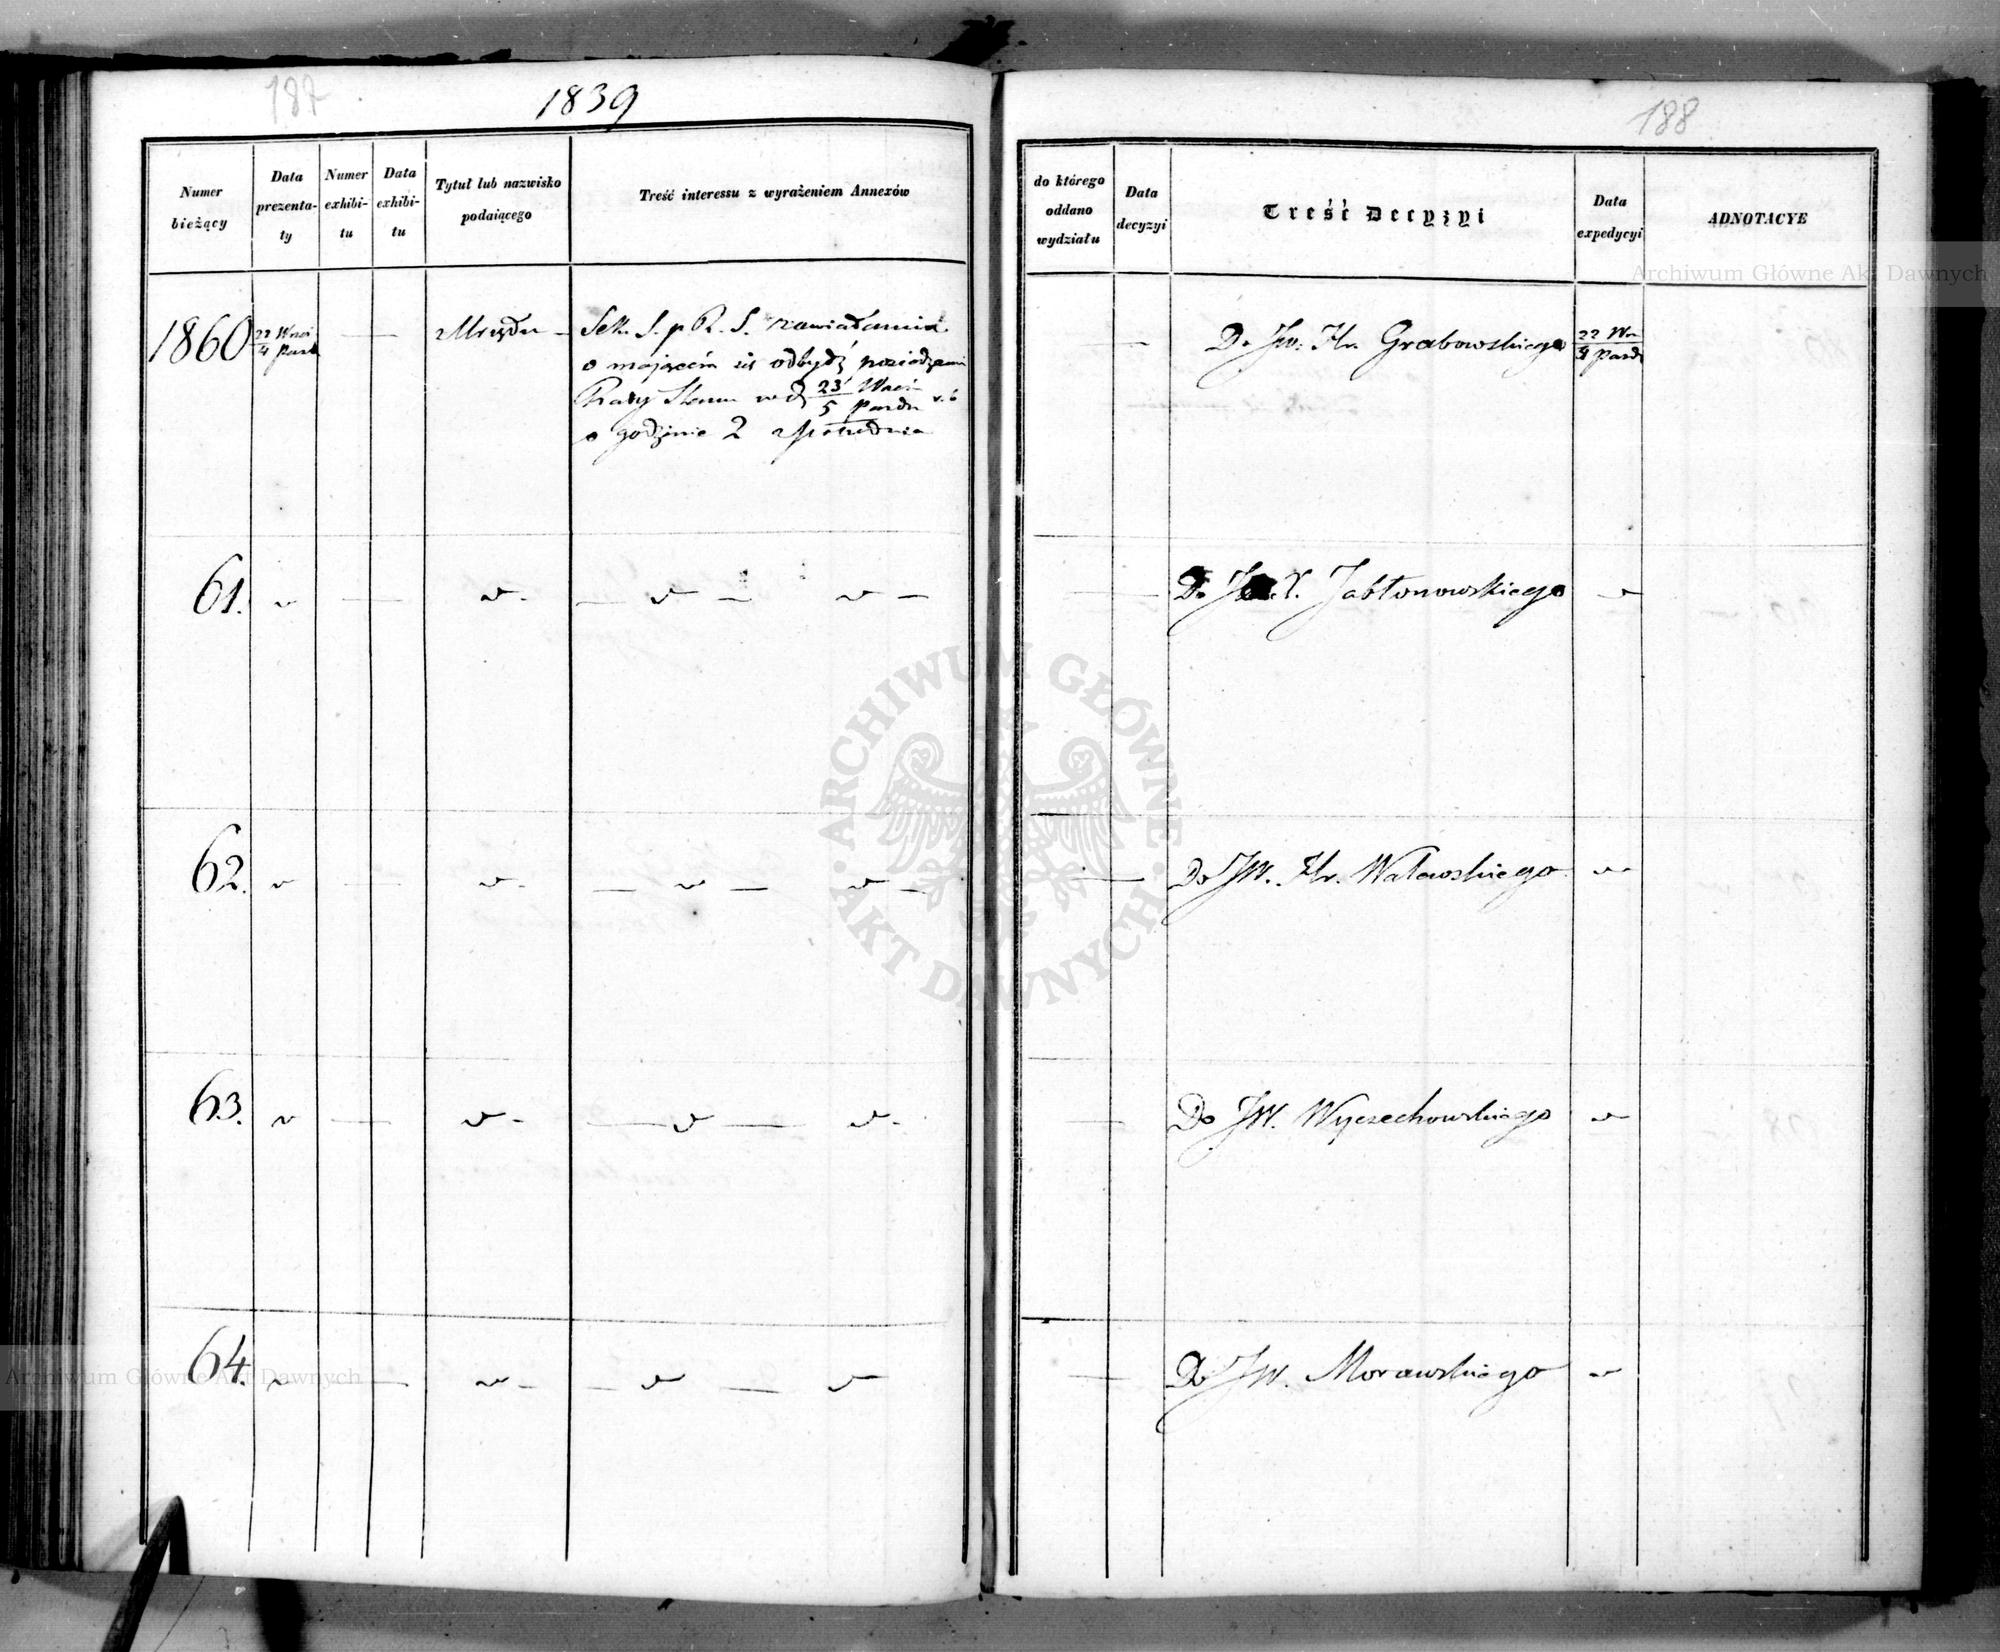 187
1839
Numer
bieżący
Data
prezenta-
ty
Numer
exhibi-
tu
Data
exhibi-
tu
Tytuł lub nazwisko
podaiącego
Treść interessu z wyrażeniem Annexów
1860
22 Wrześ
4 Paźd
z Urzędu
Sek. S. p R. S. zawiadamia
o mającém się odbydź posiedzeniu
Rady Stanu w d. 23 Wrześ
5 Paźdn
r. b
o godzinie 2 z południa
61.
62.
63.
64.
188
do którego
oddano
wydziału
Data
decyzyi
Treść Decyzyi
Data
expedycyi
ADNOTACYE
Do JW. Hr. Grabowskiego
22 Wrz
4 Paźd
Do J. X. Jabłonowskiego
Do JW. Hr. Walewskiego
Do JW. Wyczechowskiego
Do JW. Morawskiego
Archiwum Główne Akt Dawnych
ARCHIWUM GŁÓWNE · AKT DAWNYCH ·
Archiwum Główne Akt Dawnych